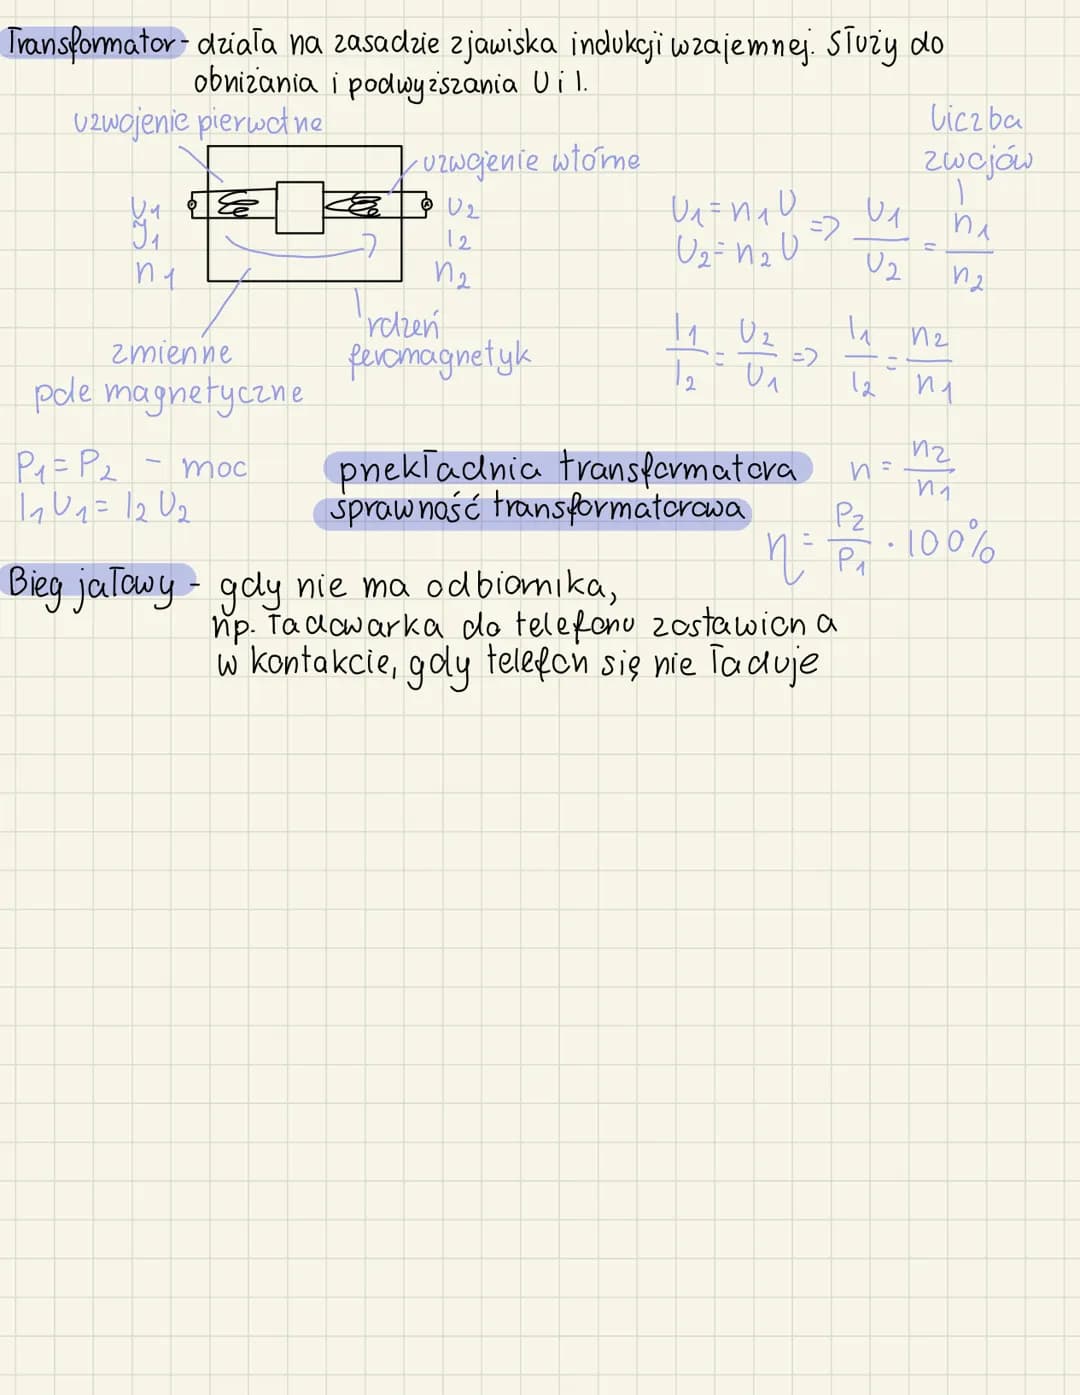 Transformator - działa na zasadzie zjawiska indukcji wzajemnej. Służy do
obniżania i podwyższania U i I.
uzwojenie pierwotne
uzwojenie wtórne
liczba
zwojów
U₁
J₁
n₁
U₂
I₂
n₂
U₁ = n₁ U
U₂ = n₂ U
=> U₁/U₂ = n₁/n₂
rdzeń
feromagnetyk
zmienne
pole magnetyczne
I₁/I₂ = U₂/U₁ => I₁/I₂ = n₂/n₁
P₁ = P₂ - moc
I₁U₁ = I₂U₂
przekładnia transformatora n = n₂/n₁
sprawność transformatorowa η = P₂/P₁ · 100%
Bieg jałowy - gdy nie ma odbiornika,
np. ładowarka do telefonu zostawiona
w kontakcie, gdy telefon się nie ładuje